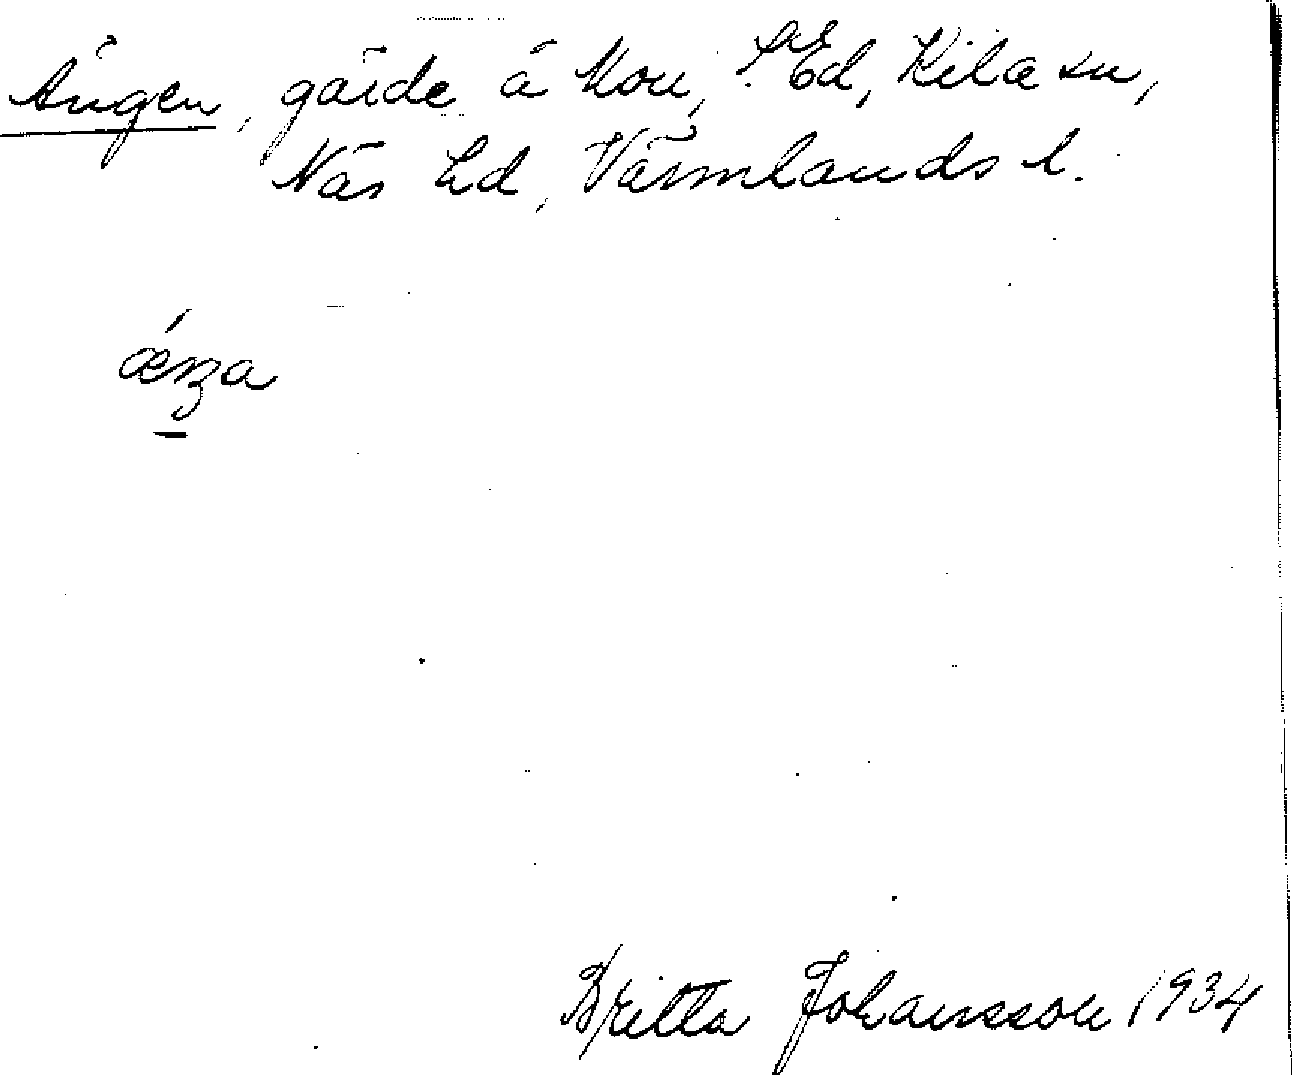 Ängen, gärde å Mon, S. Ed, Kila sn,
Näs hd, Värmlands l.
ǽnɜa
Britta Johansson 1934